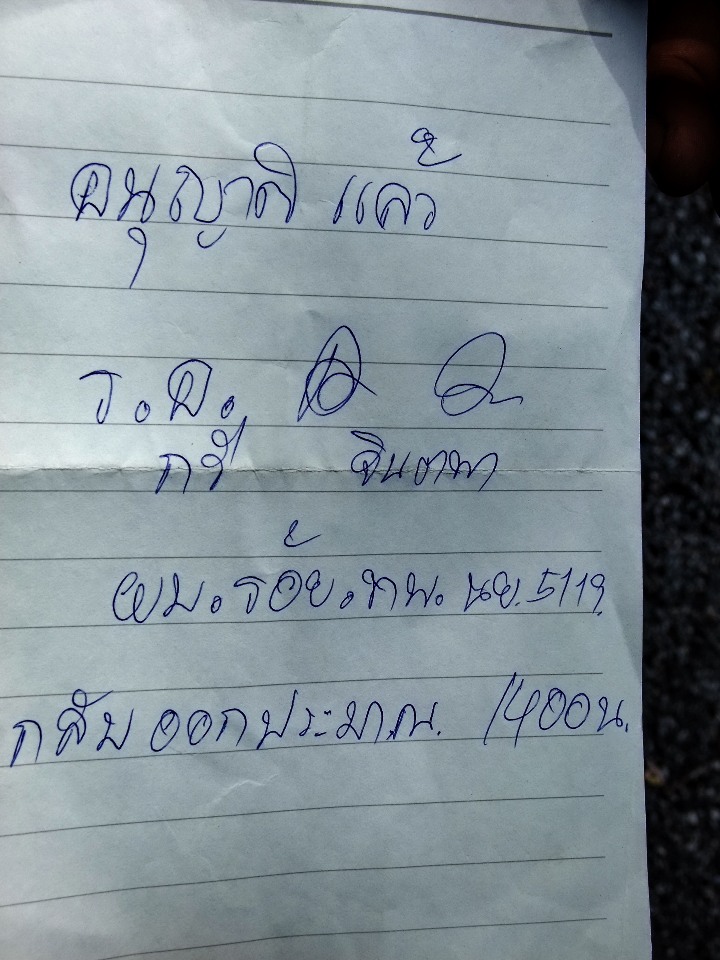 อนุญาติ แล้ว
ร.อ.
กวี จินตาพา
ผบ.ร้อย.ทพ. นย. 5119
กลับ ออกประมาณ. 1400น.